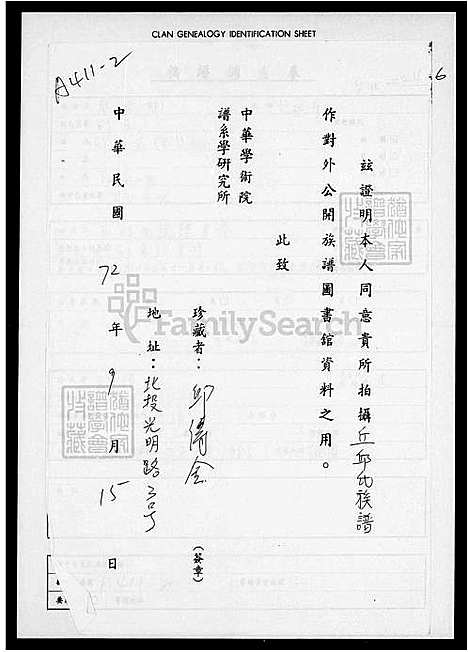 CLAN GENEALOGY IDENTIFICATION SHEET
A411-2
6
茲證明本人同意貴所拍攝丘邱氏族譜
作對外公開族譜圖書館資料之用。
此致
中華學術院
譜系學研究所
珍藏者：邱 金 (簽章)
地址：北投光明路 3号
中華民國 72 年 9 月 15 日
FamilySearch